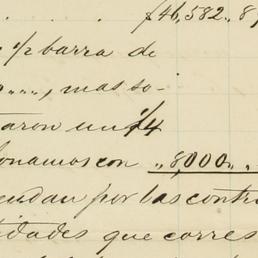 $46,582.,8
½ barra de
mas so-
aron un $4
onamos con „8,000„
endan por las contr
tidades que corres